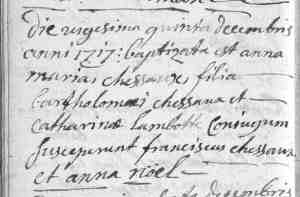 Die vigesima quinta decembris
anni 1717: baptizata est anna
maria chessaux, filia
bartholomæi chessaux et
catharinæ lambott coniugum
susceperunt franciscus chessaux
et anna noël
decembris